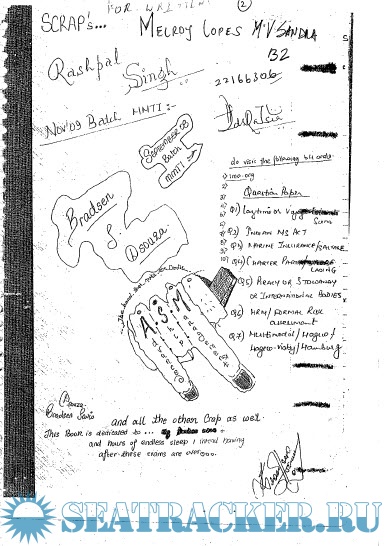 FOR WRITING
(2)
SCRAP's...
MELROY LOPES M.V SANDRA
B2
Rashpal Singh
22166306
Nov'09 Batch MMTI :-
SEPTEMBER'08
Batch
MMTI
do visit the following b4 orals
Imo.org
Question Paper
Bradsen
S
Dsouza
Q1) Laytime or Voyage
Sum
Q2) INDIAN MS ACT
Q3) MARINE INSURANCE/SALVAGE
Q4) CHARTER
LADING
Q5) PIRACY OR STOWAWAY
OR INTERNATIONAL BODIES
Q6) HRM / FORMAL RISK
assessment
Q7) Multimodal / Hague /
Hague-Visby / Hamburg
A.S.M
Advanced
Ship
Management
Dsouza
Bradsen Savio
and all the other Crap as well
This Book is dedicated to ...
and hours of endless sleep I intend having
after these exams are over....
SEATRACKER.RU